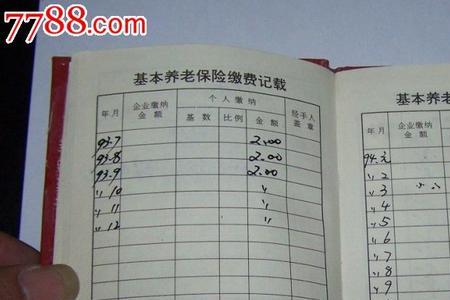 7788.com
基本养老保险缴费记载
年月 企业缴纳金额 个人缴纳 经手人签章
基数 比例 金额
93.7 2.00
93.8 2.00
93.9 2.00
〃10 〃
〃11 〃
〃12 〃
基本养老
年月 企业缴纳金额
94.元
〃2
〃3 〃
〃4
〃5
〃6
〃7
〃8
〃9